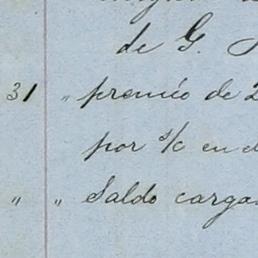 de G.
31 " premio de 2
por s/c en
" " Saldo carga